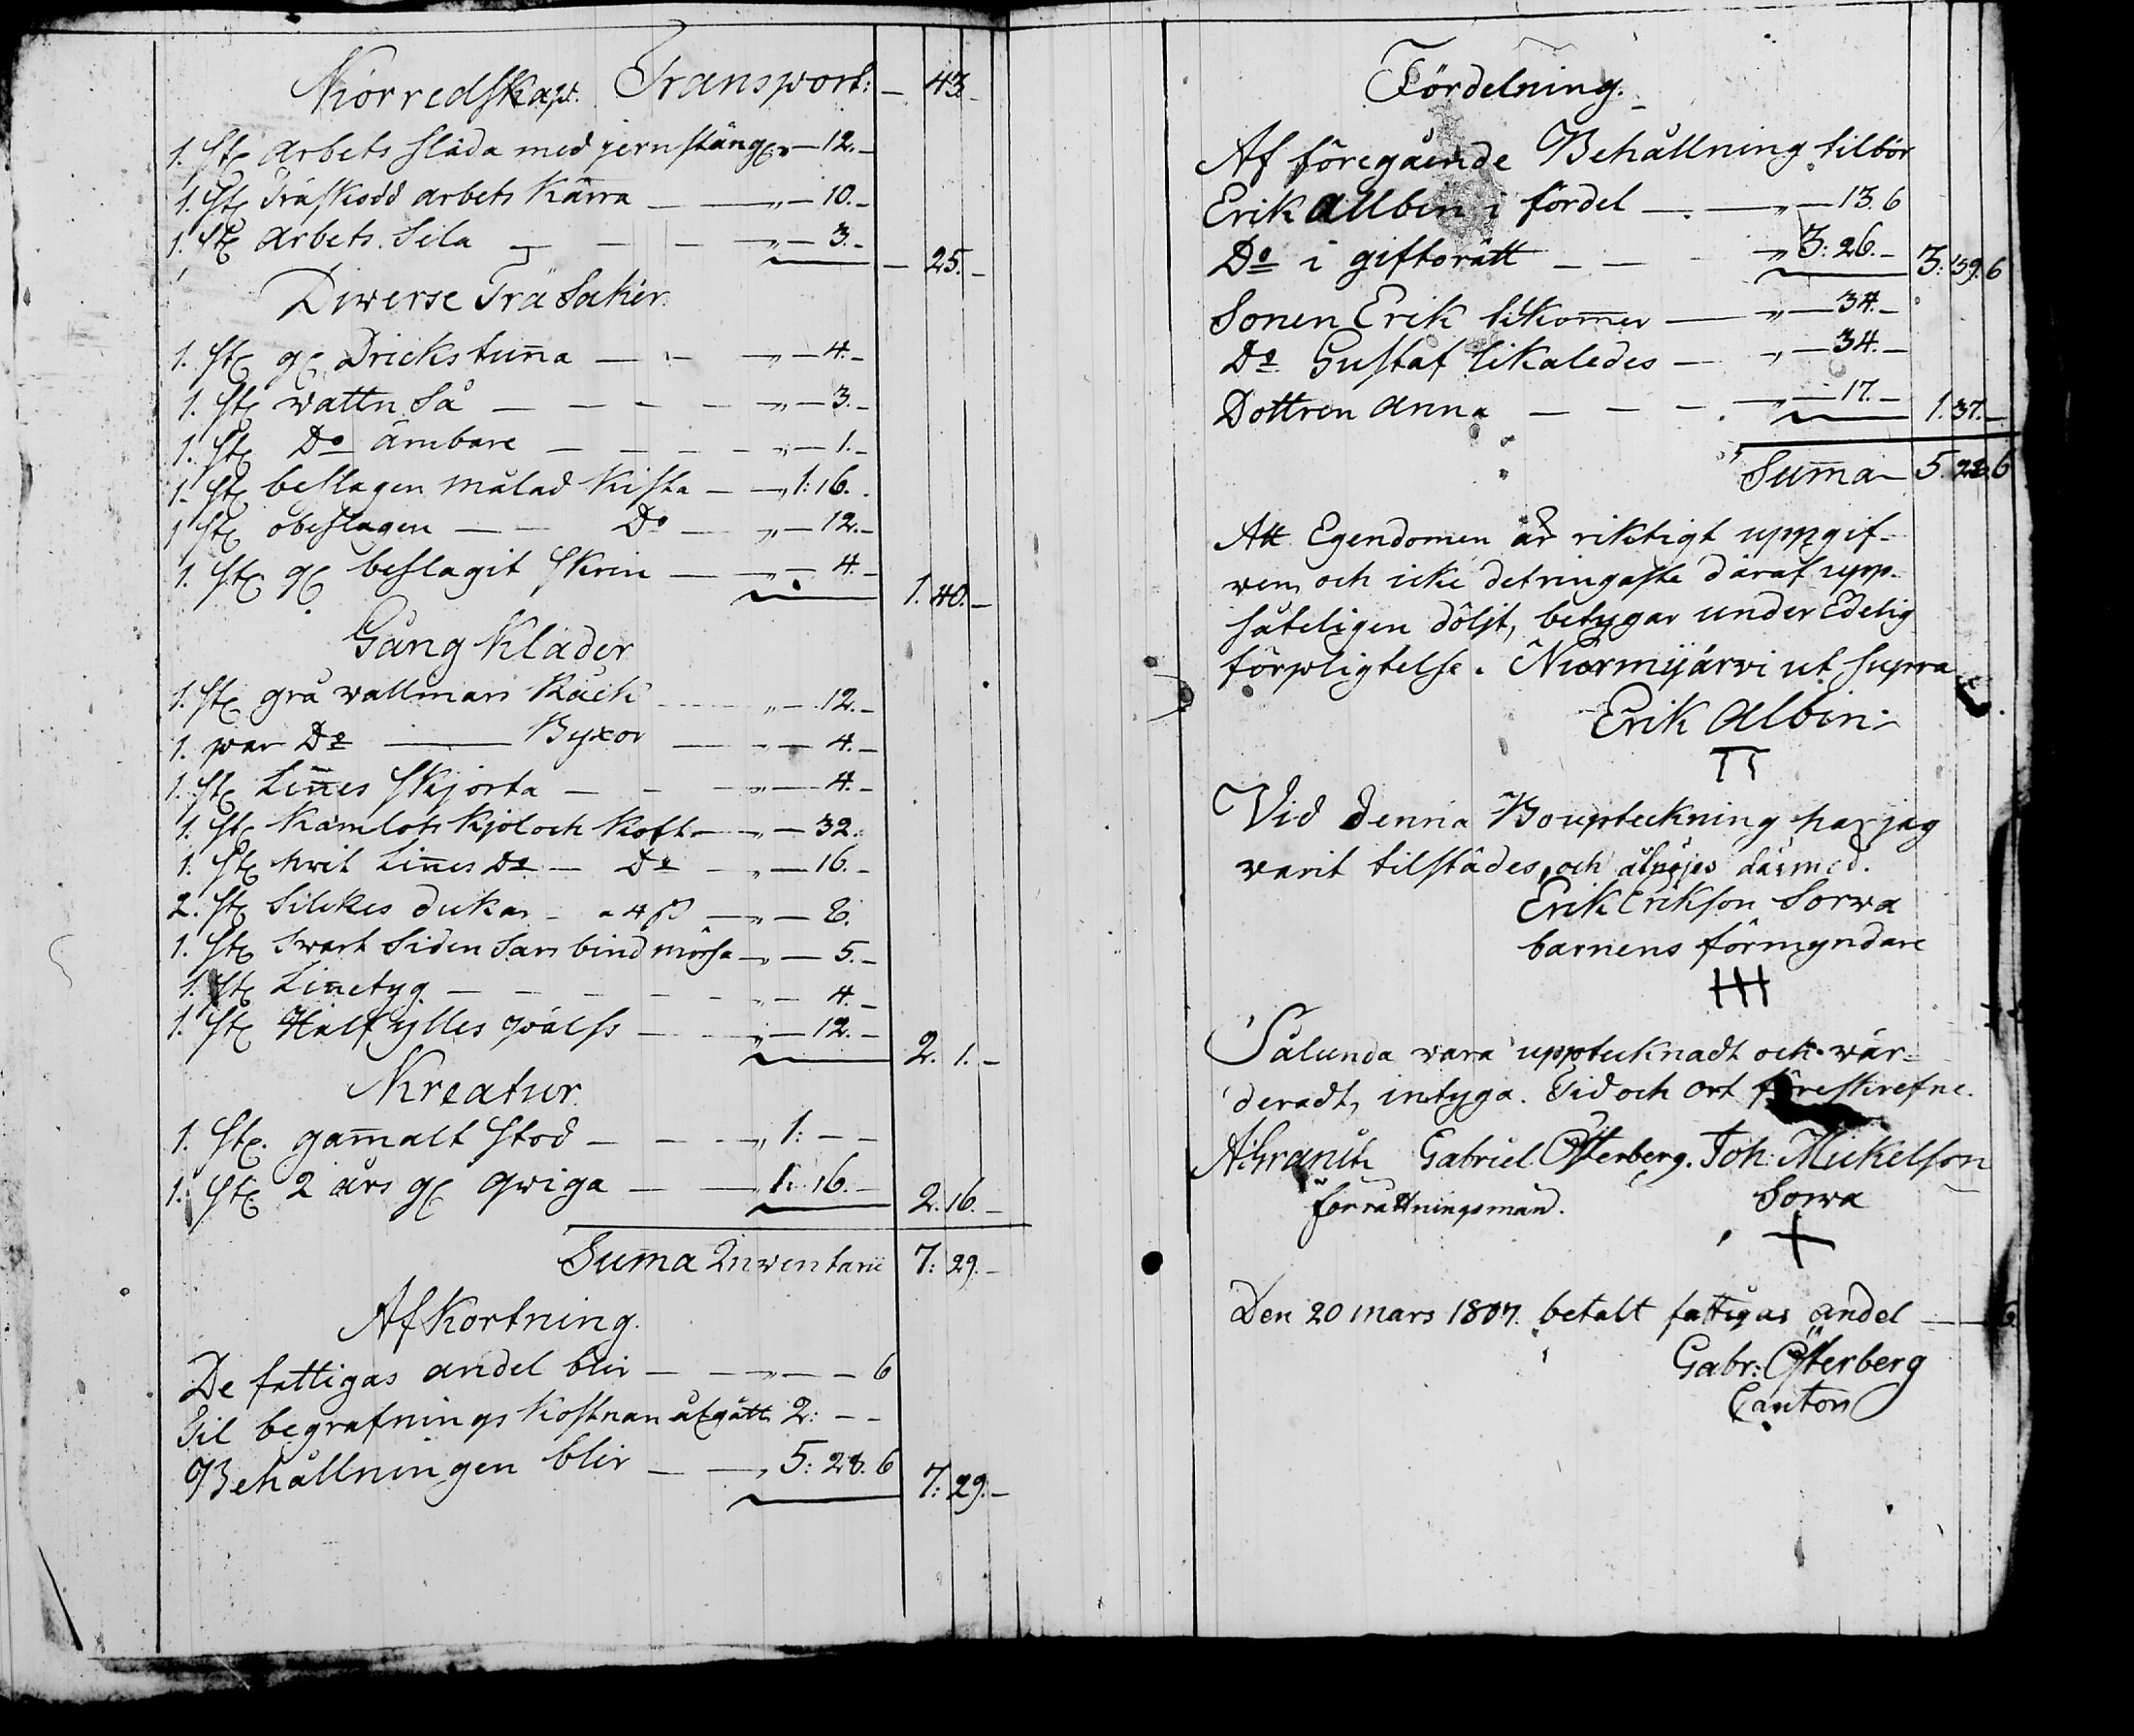 Kiörredskap. Transport: — 43. —
1. st. arbets släda med jernstäng. „ — 12. —
1. st. Träskodd arbets Kärra — „ — 10. —
1. st. arbets. Sela — — — „ — 3. — — 25. —
Diverse Träsaker.
1. st. g. Drickstunna — — „ — 4. —
1. st. vattn Så — — — — „ — 3. —
1. st. Do ämbare — — — — „ — 1. —
1. st. beslagen målad Kista — „ 1: 16.
1 st. obeslagen — — Do — „ — 12. —
1. st. g. beslagit Skrin — „ — 4. — 1. 40. —
Gång Kläder
1. st. grå vallmars Råck — „ — 12. —
1. par Do — Byxor — „ — 4. —
1. st. Linnes Skjorta — — „ — 4. —
1. st. Kamlots Kjol och Kofta „ — 32.
1. st. hvit Linnes Do — Do — „ — 16. —
2. st. Silckes dukar — a 4 ß — „ — 8.
1. st. Svart Siden Sars bindmössa — „ — 5. —
1. st. Linetyg — — — — „ — 4. —
1. st. Halfylles pääls — „ — 12. — 2. 1. —
Kreatur.
1. st. gammalt Stod — — „ 1: — —
1. st. 2 års g. qwiga — „ 1: 16. — 2. 16. —
Summa Inventarie 7: 29. —
Afkortning.
De fattigas andel blir — „ — — 6
Til begrafnings Kostnan åtgått 2: — —
Behållningen blir — „ 5: 28. 6 7: 29. —
Fördelning.
Af föregående Behållning tilbör
Erik Allbin i fördel — „ — 13. 6
Do i giftorätt — — „ 3: 26. — 3: 39. 6
Sonen Erik tilkommer — „ — 34. —
Do Gustaf likaledes — „ — 34. —
Dottren Anna — — — „ — 17. — 1. 37. —
Summa 5. 28. 6
Att Egendomen är riktigt uppgif-
ven, och icke det ringaste däraf upp-
såteligen döljt, betygar under Edelig
förpligtelse. Nurmijärvi ut supra
Erik Albin
Vid denna Boupteckning har jag
varit tilstädes, och åtnöjes därmed.
Erik Erikson Sorva
barnens förmyndare
Sålunda vara upptecknadt och vär-
deradt, intyga. Tid och ort föreskrefne.
Gabriel Österberg. Joh: Mickelson
förrättningsmän. Sorva
Den 20 mars 1807. betalt fattigas andel — 6.
Gabr: Österberg
Cantor